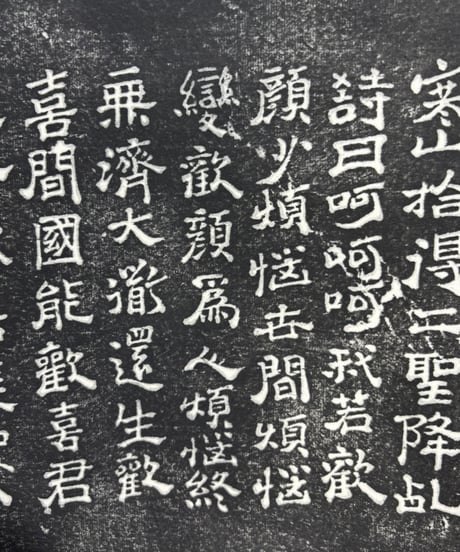 寒山拾得二聖降乩
詩曰呵呵呵我若歡
顔少煩惱世間煩惱
變歡顔爲人煩惱終
無濟大道還生歡
喜間國能歡喜君